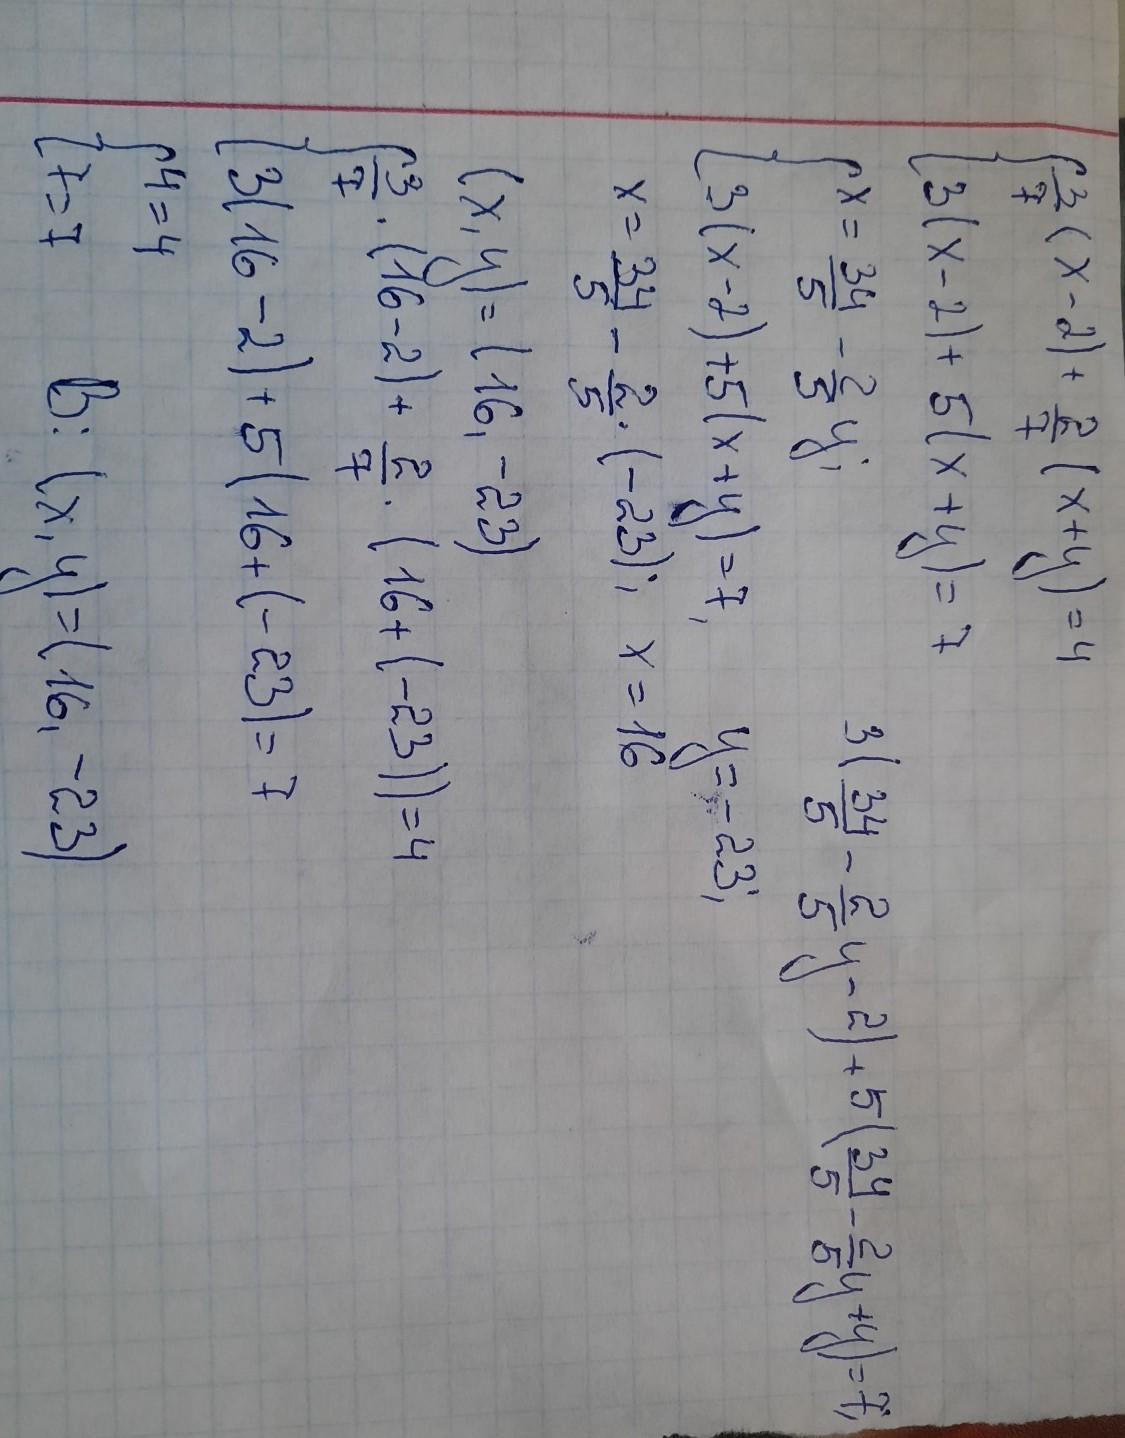 {3/7(x-2)+2/7(x+y)=4
{3(x-2)+5(x+y)=7
{x=34/5-2/5y;        3(34/5-2/5y-2)+5(34/5-2/5y+y)=7,
{3(x-2)+5(x+y)=7,    y=-23;
x=34/5-2/5·(-23);   x=16
(x,y)=(16,-23)
{3/7·(16-2)+2/7·(16+(-23))=4
{3(16-2)+5(16+(-23)=7
{4=4
{7=7    В: (x,y)=(16,-23)